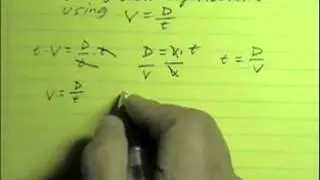 using V = D/t
t · V = D/t · t D/V = V · t/V t = D/V
V = D/t